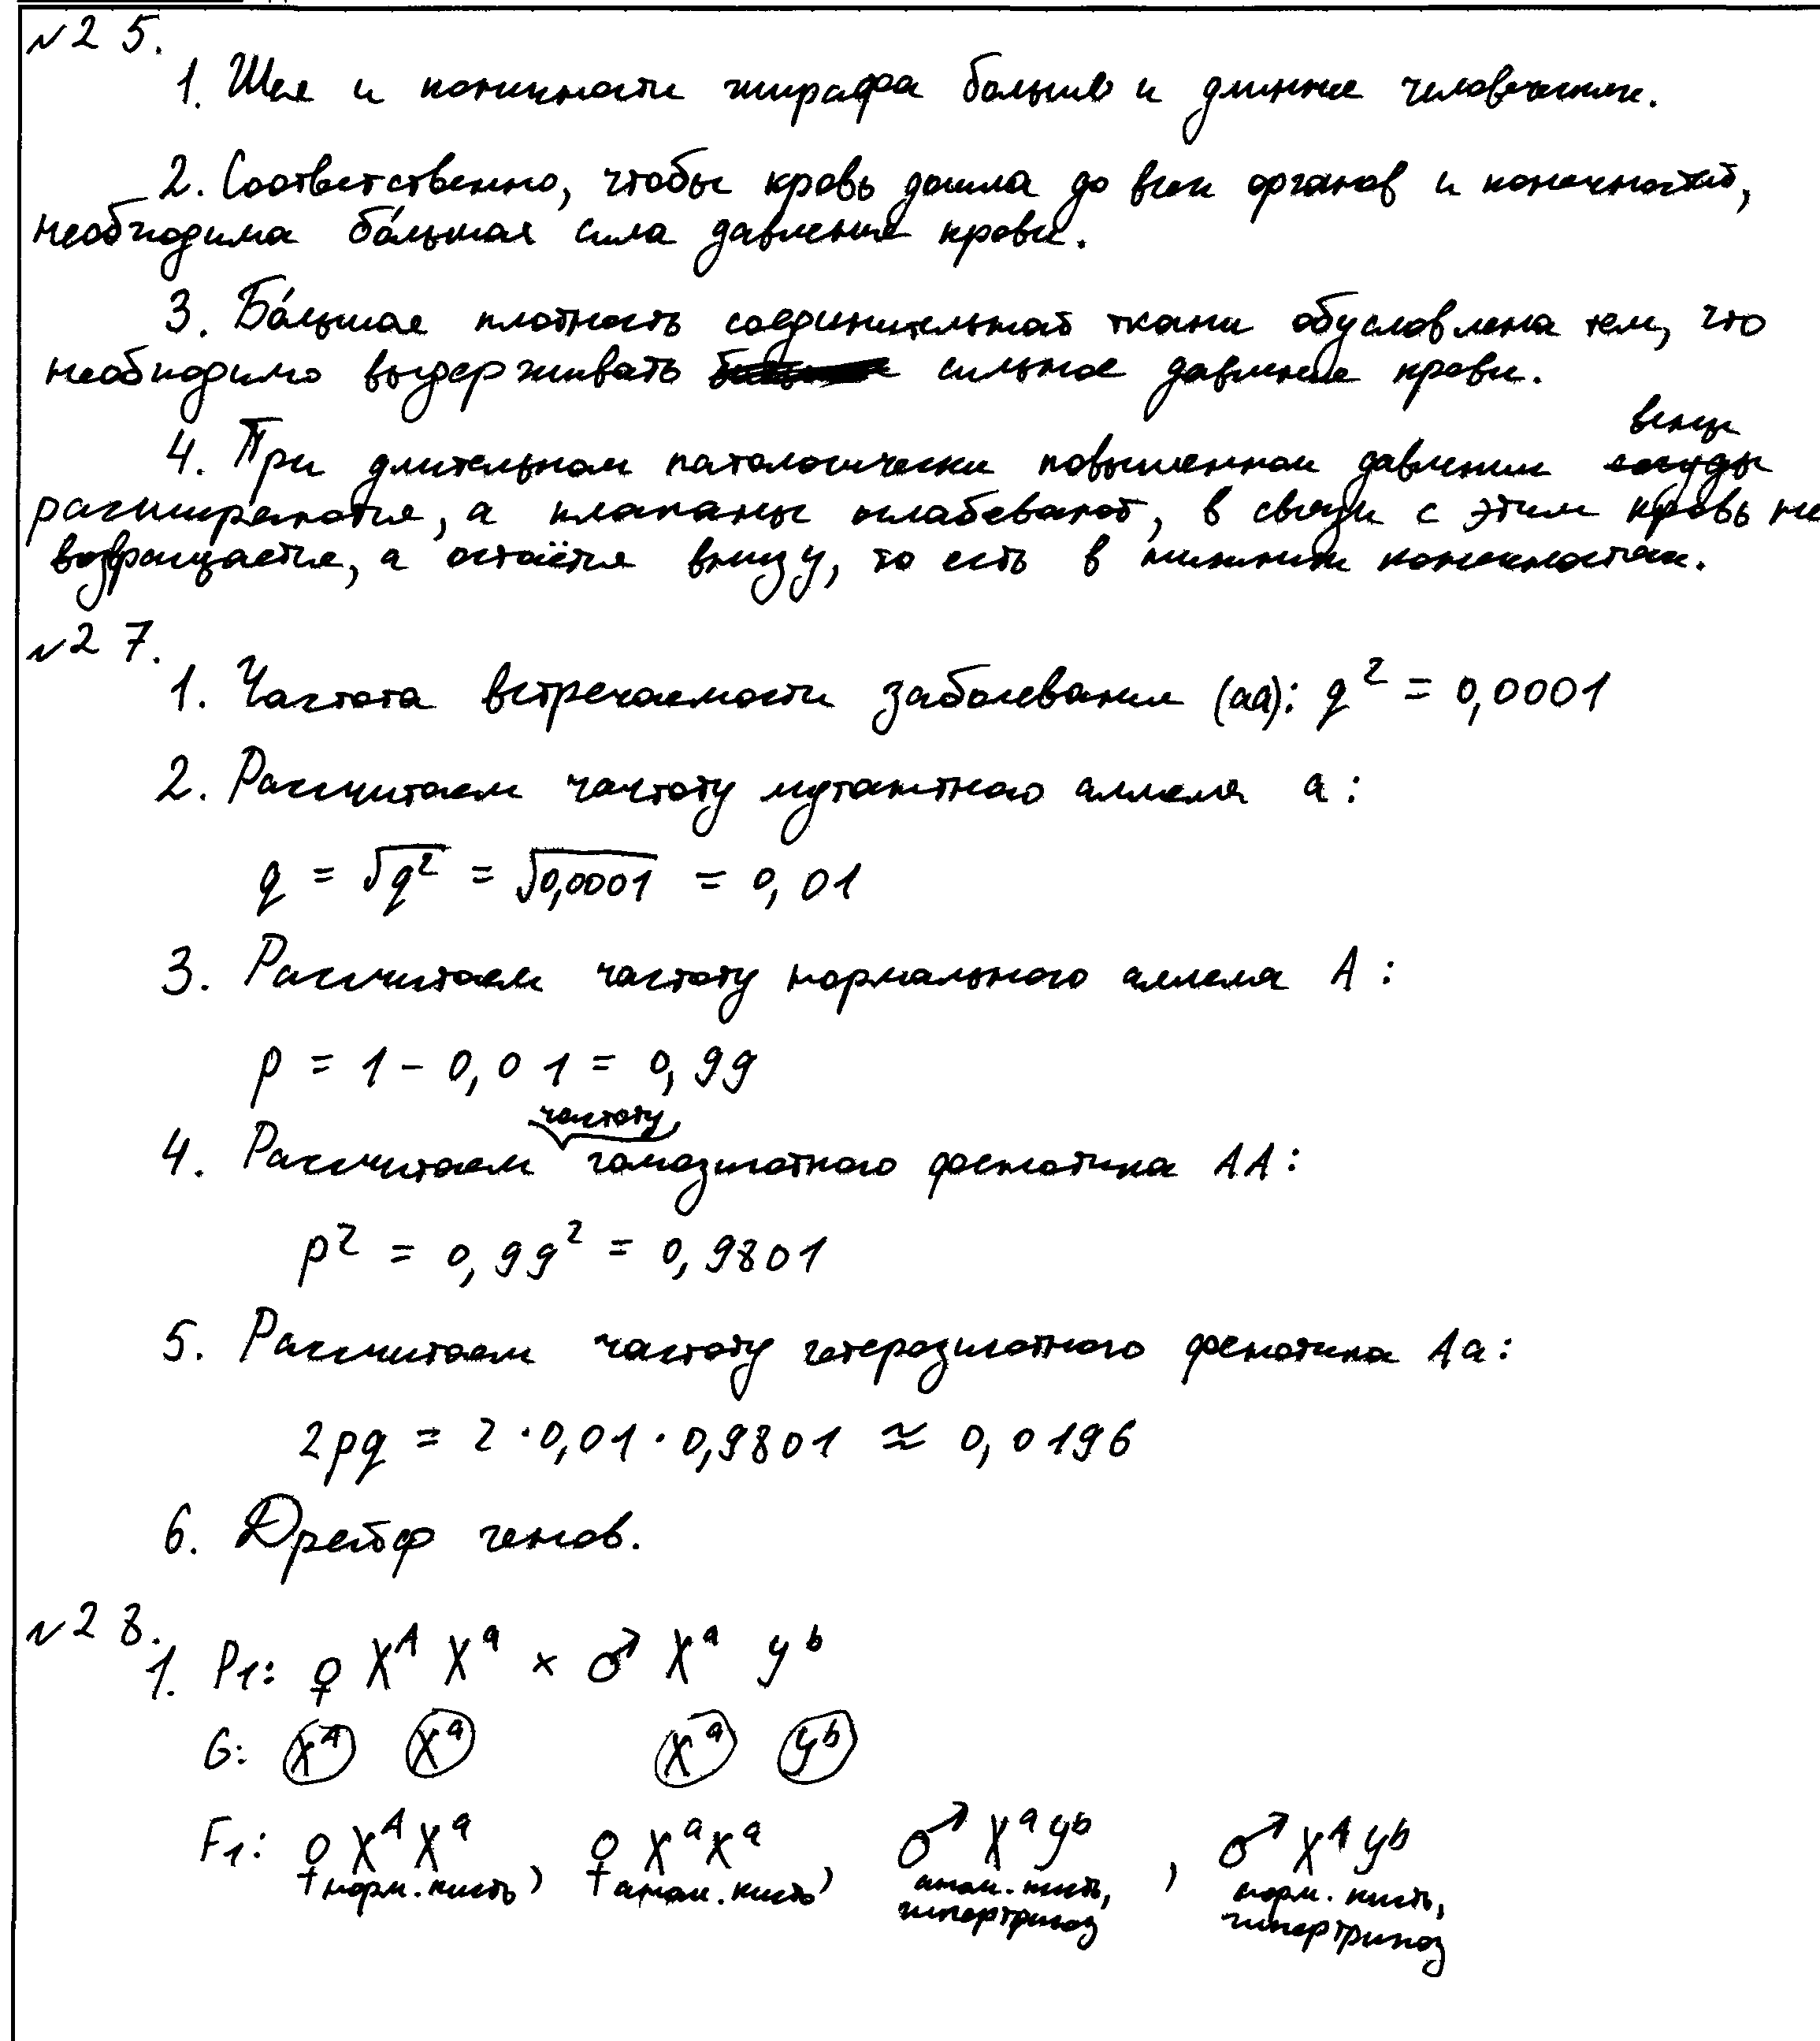 №25.
1. Шея и конечности жирафа больше и длиннее человеческих.
2. Соответственно, чтобы кровь дошла до всех органов и конечностей,
необходима бо́льшая сила давления крови.
3. Бо́льшая плотность соединительной ткани обусловлена тем, что
необходимо выдерживать сильное давление крови.
вены
4. При длительном патологически повышенном давлении сосуды
расширяются, а клапаны ослабевают, в связи с этим кровь не
возвращается, а остаётся внизу, то есть в нижних конечностях.
№27.
1. Частота встречаемости заболевания (аа): q² = 0,0001
2. Рассчитаем частоту мутантного аллеля а:
q = √q² = √0,0001 = 0,01
3. Рассчитаем частоту нормального аллеля А:
p = 1 - 0,01 = 0,99
частоту
4. Рассчитаем гомозиготного фенотипа АА:
p² = 0,99² = 0,9801
5. Рассчитаем частоту гетерозиготного фенотипа Аа:
2pq = 2 · 0,01 · 0,9801 ≈ 0,0196
6. Дрейф генов.
№28.
1. P1: ♀ Xᴬ Xᵃ × ♂ Xᵃ yᵇ
G: Xᴬ Xᵃ Xᵃ yᵇ
F1: ♀ XᴬXᵃ, ♀ XᵃXᵃ, ♂ Xᵃyᵇ, ♂ Xᴬyᵇ
норм. кисть аном. кисть аном. кисть, норм. кисть,
гипертрихоз гипертрихоз